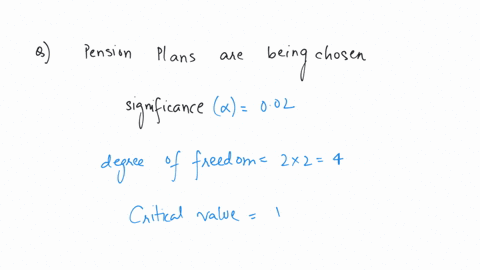 Q) Pension Plans are being chosen
significance (α) = 0.02
degree of freedom = 2 x 2 = 4
Critical value = 1